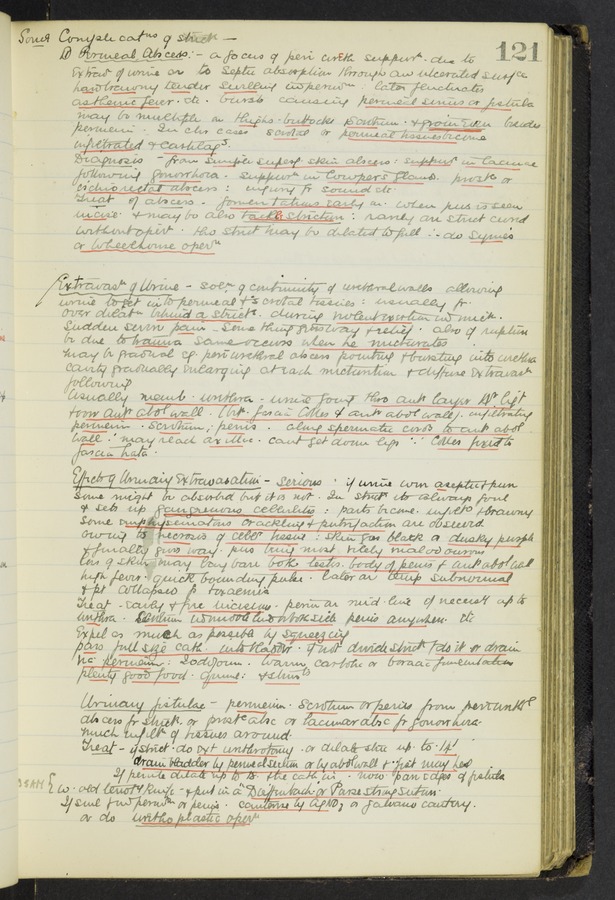 Some Complications of Strict -
121
1) Perineal Abscess: - a focus of peri ureth suppurn. due to
Extrav of urine or to Septic absorption through an ulcerated surface
hard brawny tender swelling in perinm. later fluctuates
asthenic fever. etc. bursts causing perineal sinus or fistula
may be multiple in thighs: buttocks Scrotum. & groin even besides
perineum. In chr cases scrotal or perineal tissues become
infiltrated & cartilags.
Diagnosis - from simple superf. skin abscess: suppurn in lacunae
following gonorrhoea. suppurn in Cowper's gland. prostc or
ischio rectal abscess: injury fr sound etc
Treat of abscess. fomentations early on. when pus is seen
incise & may be also tackle stricture: rarely an strict cured
without opern. tho strict may be dilated to full :- do Syme's
or Wheelhouse opern
Extravasn of Urine - soln of continuity of urethral walls allowing
urine to get into perineal & scrotal tissues: usually fr.
over dilatn behind a strictr. during violent exertion in mict.
Sudden severe pain - Something gives way & relief. also if rupture
be due to trauma Same occurs when he micturates
may be gradual eg. peri urethral abscess pointing & bursting into urethra
cavity gradually enlarging at each micturition & diffuse Extravasn
following
Usually memb. urethra - urine going thro ant layer trir ligt
toor antr abdl wall. (btn fascia Colles & ant abdl wall). infiltrating
perineum - Scrotum; penis. along spermatic cords to antr abdl
wall: may reach axillae. cant get down legs ∵ Colles fixed to
fascia lata.
Effects of Urinary Extravasation - Serious. if urine were aseptic & pure
some might be absorbed but it is not. In strict its always foul
& sets up gangrenous cellulitis: parts become infiltd & brawny
some emphysematous crackling & putrifaction are observed
owing to necrosis of cellr tissue: skin goes black or dusky purple
& finally gives way. pus being most vilely malodourous
loss of skin may lay bare both testes. body of penis & antr abdl wall
high fever. quick bounding pulse. later on temp subnormal
& pt collapses fr toxaemia
Treat - early & free incisions. perin in mid-line if necessy up to
urethra. Scrotum penis anywhere. etc
Expel as much as possible by Squeezing
pass full size cath. into bladder. if not divide strict / do it or drain
via perineum: Iodoform. warm carbolic or boracic fomentations
plenty good food. quine: & stimts
Urinary fistulae - perineum. Scrotum or penis from periurethl
abscess fr strictr. or prostc absc or lacunar absc fr gonorrhoea.
much infiltn of tissues around.
Treat - if strict. do ext urethrotomy. or dilate stre up to 14
drain bladder by perineal section or by abdl wall & fist may heal
If penile dilate up to the cath in. now pare edges of fistula
w. old tenotomy Knife. & put in a Dieffenbach or Purse String Suture.
If small fist perinm or penis. cauterise by AgNO3 or galvano cautery.
or do urethroplastic opern